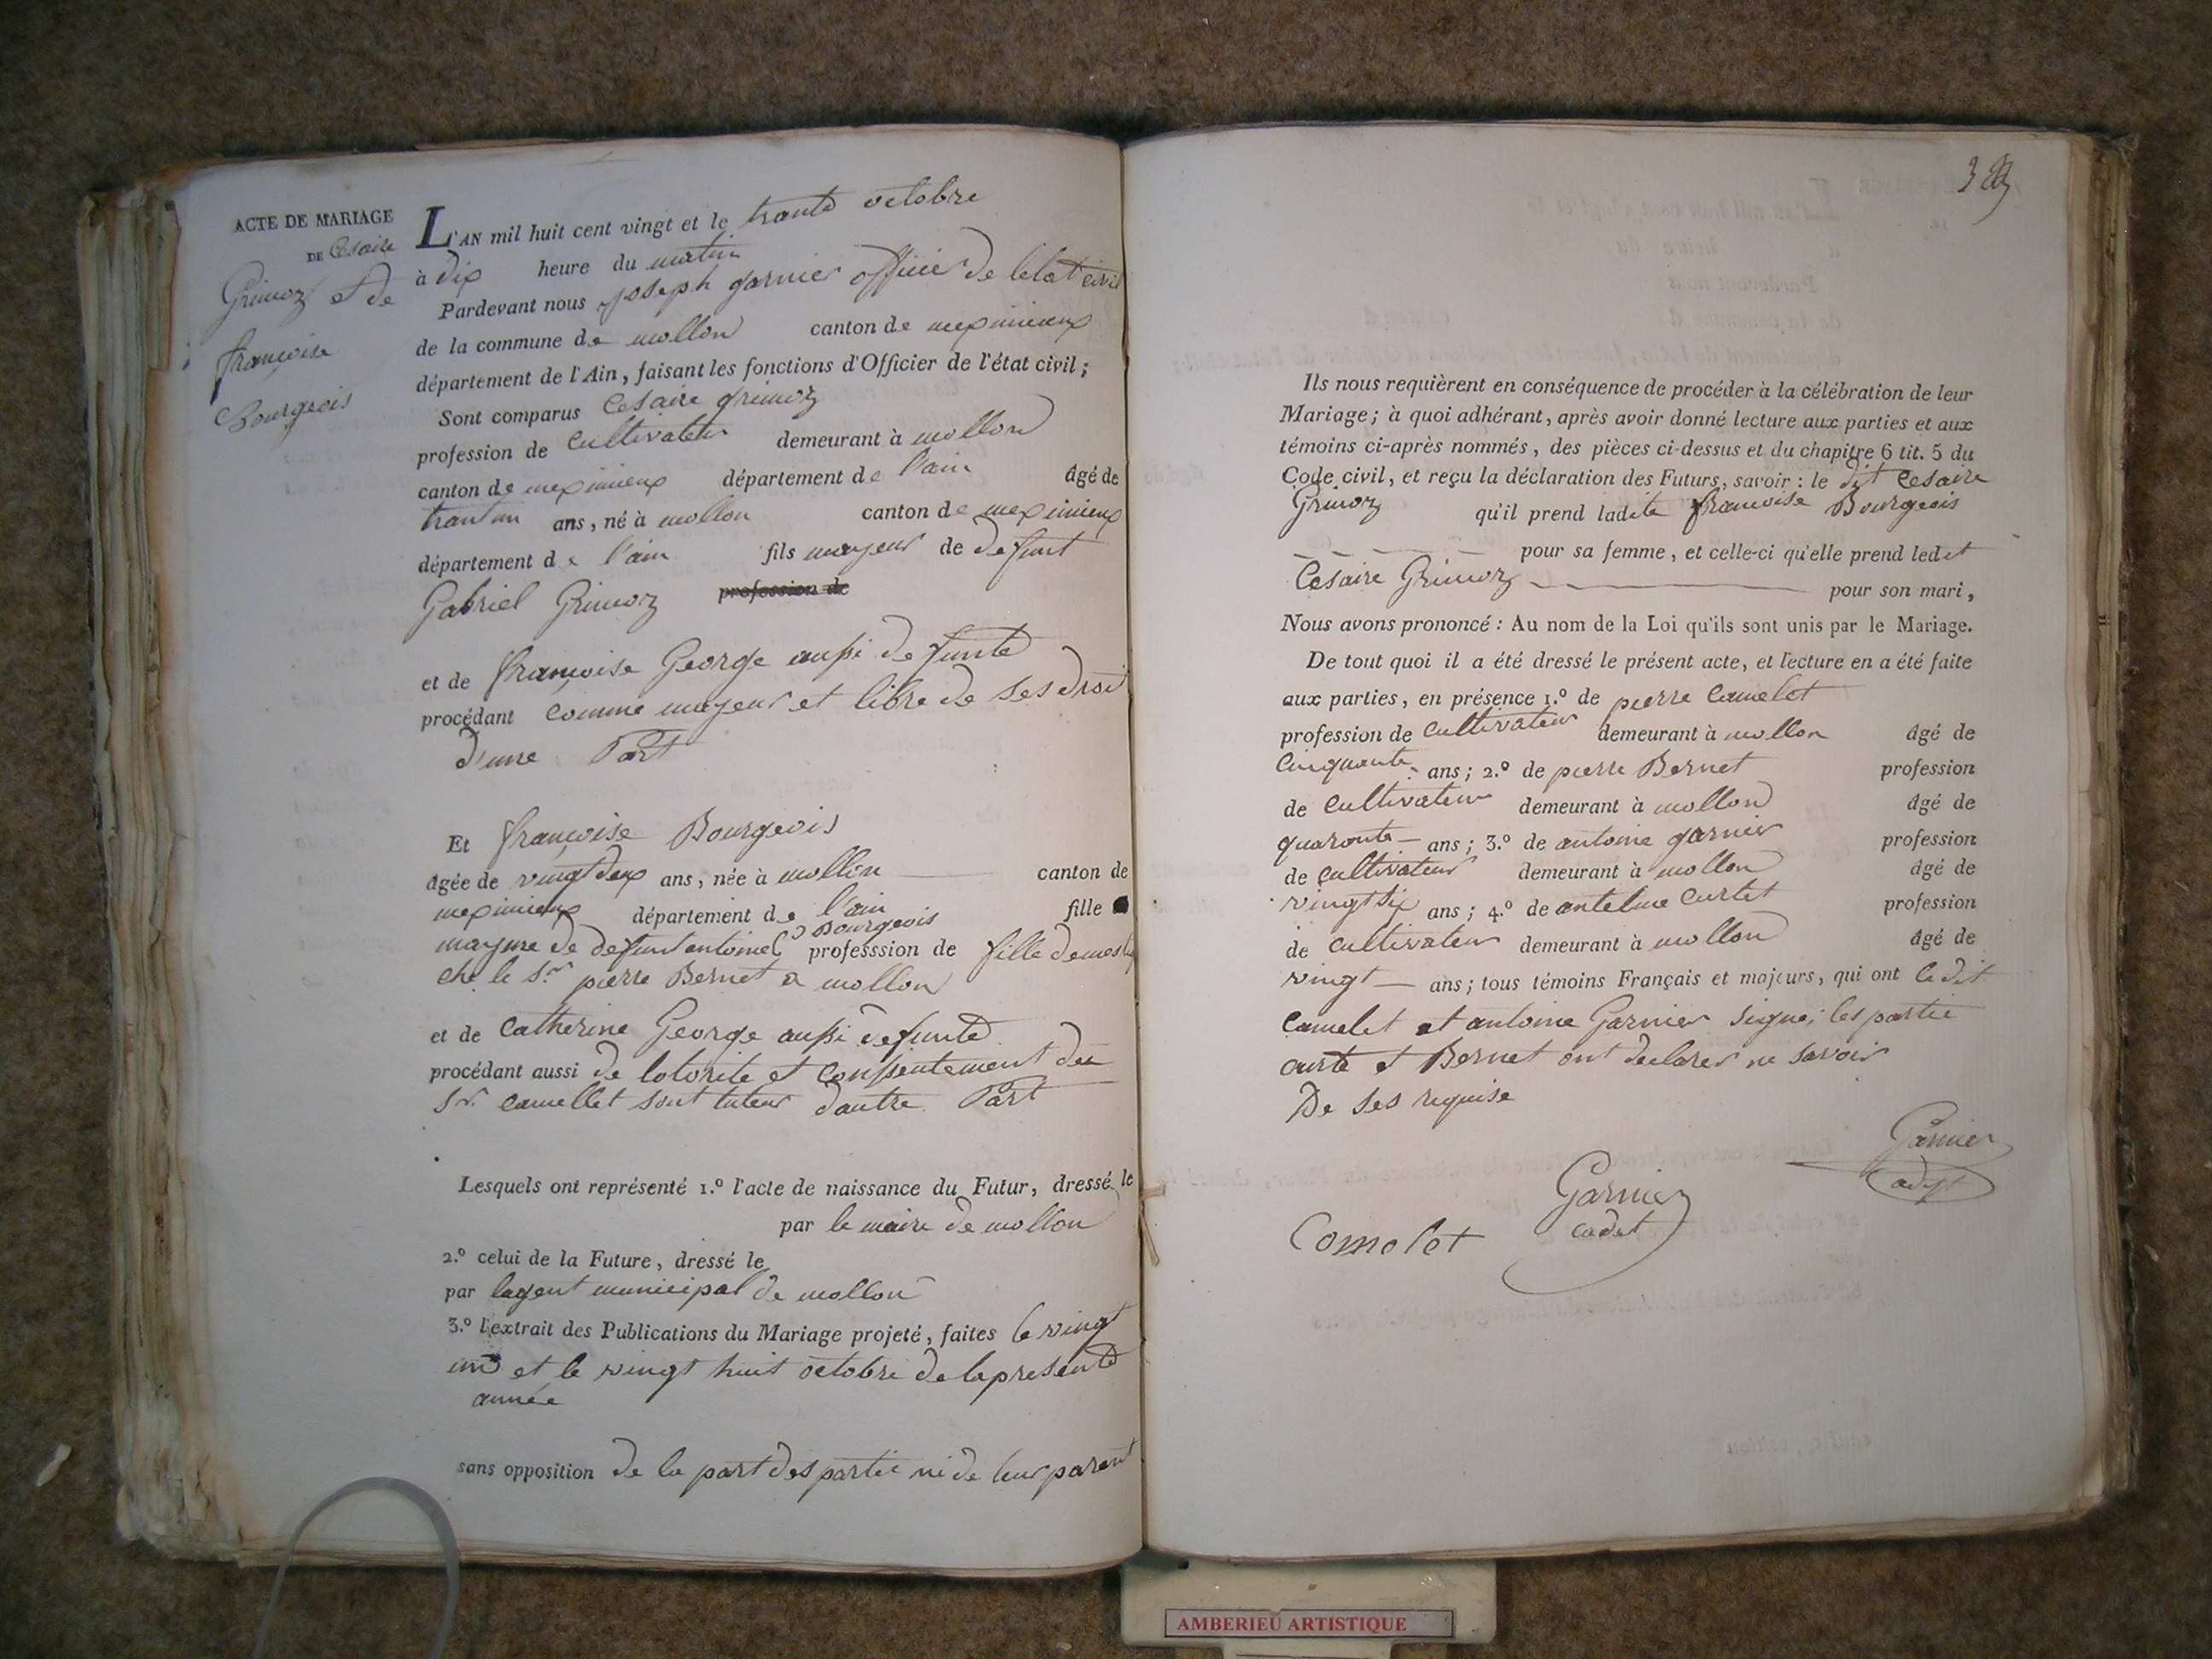 ACTE DE MARIAGE
DE Cesaire
Grimoz et de
francoise
Bourgeois
L'AN mil huit cent vingt et le trante octobre
à dix heure du matin
Pardevant nous joseph garnier officier de letat civil
de la commune de mollon canton de meximieux
département de l'Ain, faisant les fonctions d'Officier de l'état civil;
Sont comparus Cesaire grimoz
profession de Cultivateur demeurant à mollon
canton de meximieux département de l'ain âgé de
trant un ans, né à mollon canton de meximieux
département de l'ain fils mayeur de defunt
Gabriel Grimoz profession de
et de francoise George aussi defunte
procédant comme mayeur et libre de ses droit
d'une Part
Et francoise Bourgeois
âgée de vingt deux ans, née à mollon canton de
meximieux département de l'ain fille
mayure de defunt antoine Bourgeois professsion de fille domestiq
ché le Sr pierre Bernet a mollon
et de Catherine George aussi defunte
procédant aussi de lotorité et consentement du
Sr. camellet sont tuteur dautre Part
Lesquels ont représenté 1.º l'acte de naissance du Futur, dressé le
par le maire de mollon
2.º celui de la Future, dressé le
par lagent municipal de mollon
3.º l'extrait des Publications du Mariage projeté, faites le vingt
un et le vingt huit octobre de la presente
année
sans opposition de la part des partie ni de leur parent
Ils nous requièrent en conséquence de procéder à la célébration de leur
Mariage; à quoi adhérant, après avoir donné lecture aux parties et aux
témoins ci-après nommés, des pièces ci-dessus et du chapitre 6 tit. 5 du
Code civil, et reçu la déclaration des Futurs, savoir: le dit Cesaire
Grimoz qu'il prend ladite francoise Bourgeois
pour sa femme, et celle-ci qu'elle prend ledit
Cesaire Grimoz pour son mari,
Nous avons prononcé: Au nom de la Loi qu'ils sont unis par le Mariage.
De tout quoi il a été dressé le présent acte, et lecture en a été faite
aux parties, en présence 1.º de pierre Camelet
profession de Cultivateur demeurant à mollon âgé de
Cinquante ans; 2.º de pierre Bernet profession
de Cultivateur demeurant à mollon âgé de
quaronte ans; 3.º de antoine garnier profession
de cultivateur demeurant à mollon âgé de
vingt six ans; 4.º de antelme Curtet profession
de cultivateur demeurant à mollon âgé de
vingt ans; tous témoins Français et majeurs, qui ont ledit
camelet et antoine Garnier signé; les partie
et Bernet ont declarer ne savoir
De ses requise
Garnier
Garnier
cadet
Comolet
AMBERIEU ARTISTIQUE